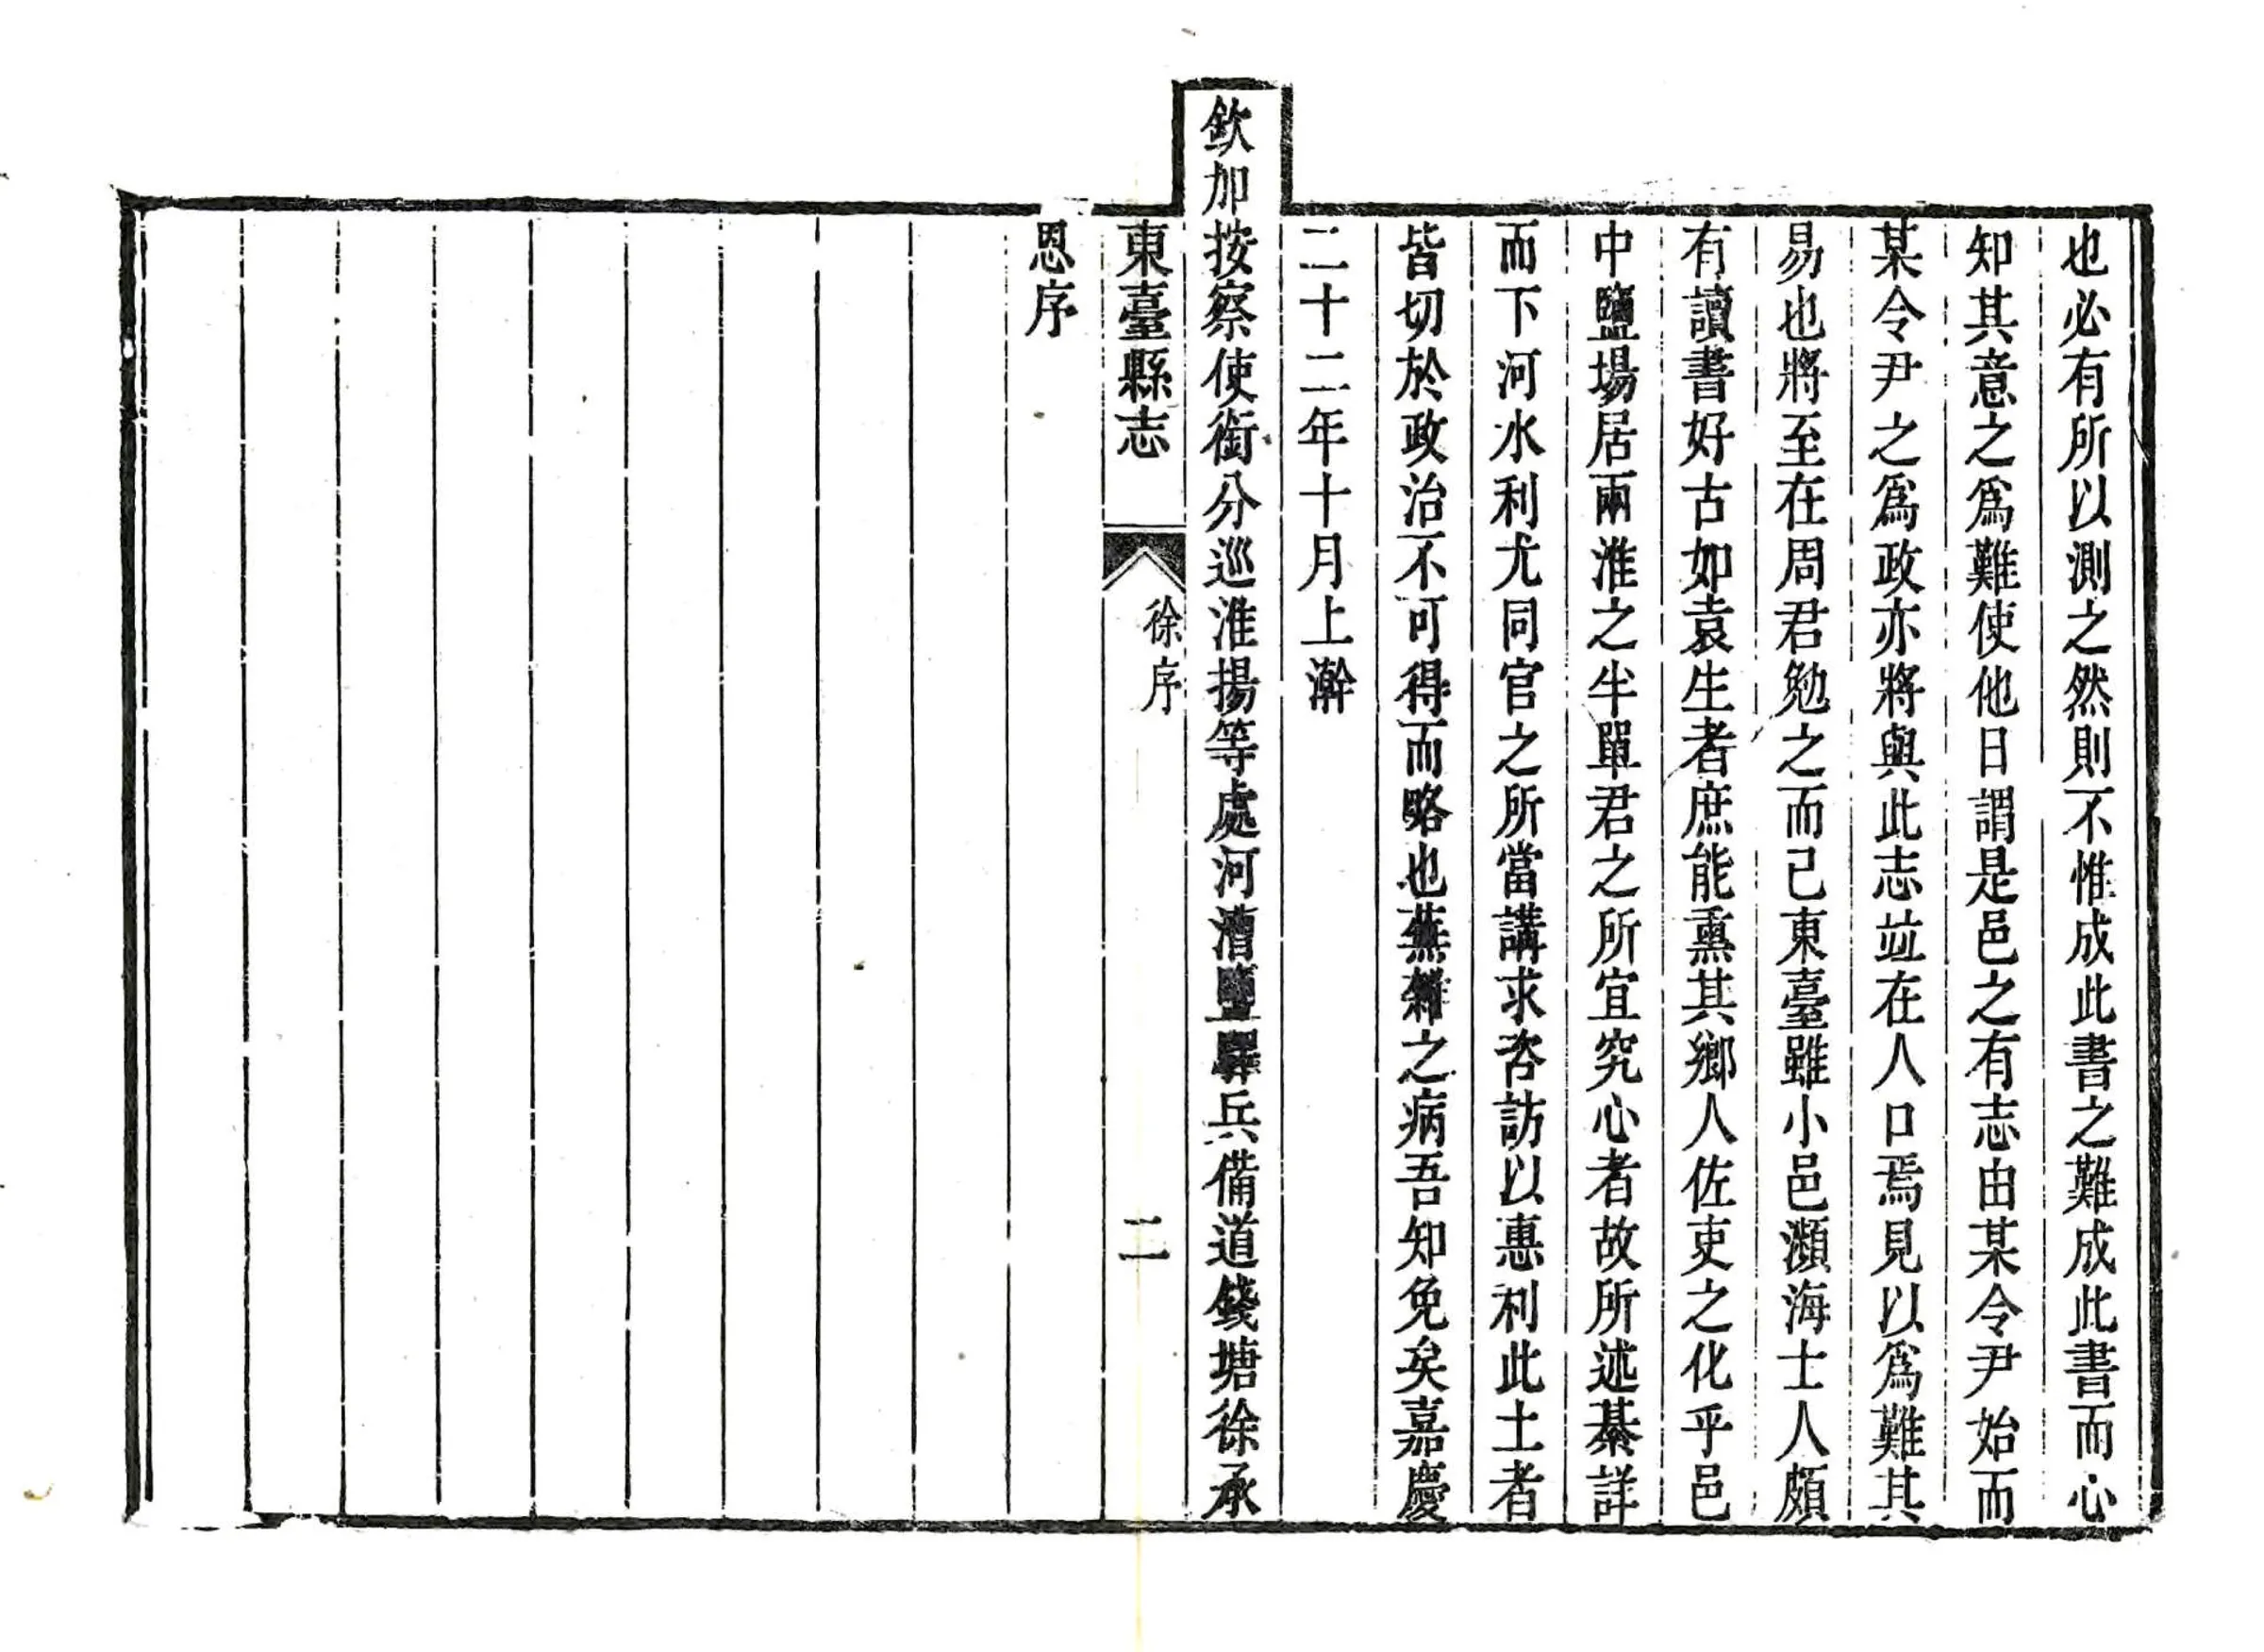 也必有所以測之然則不惟成此書之難成此書而心
知其意之爲難使他日謂是邑之有志由某令尹始而
某令尹之爲政亦將與此志竝在人口焉見以爲難其
易也將至在周君勉之而已東臺雖小邑瀕海士人頗
有讀書好古如袁生者庶能熏其鄉人佐吏之化乎邑
中鹽場居兩淮之半單君之所宜究心者故所述綦詳
而下河水利尤同官之所當講求咨訪以惠利此土者
皆切於政治不可得而略也蕪雜之病吾知免矣嘉慶
二十二年十月上澣
欽加按察使銜分巡淮揚等處河漕鹽驛兵備道錢塘徐承
東臺縣志 徐序 二
恩序